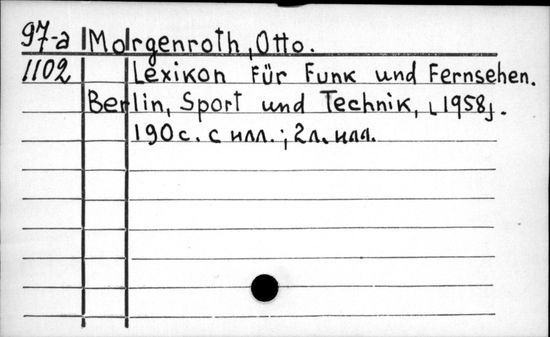 97-а Morgenroth, Otto.
1102 Lexikon für Funk und Fernsehen.
Berlin, Sport und Technik, [1958].
190 с. с илл.; 2 л. илл.